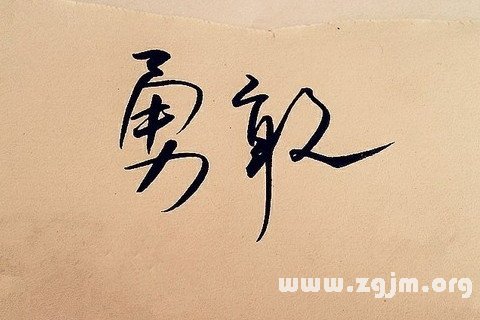 勇敢
www.zgjm.org